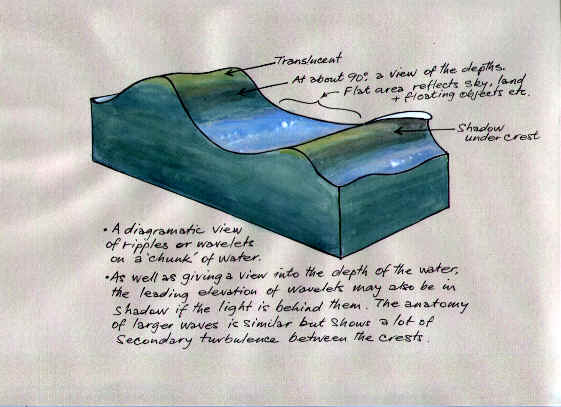 Translucent
At about 90° a view of the depths.
Flat area reflects sky, land
+ floating objects etc.
Shadow
under crest
• A diagramatic view
of ripples or wavelets
on a 'chunk' of water.
• As well as giving a view into the depth of the water,
the leading elevation of wavelets may also be in
shadow if the light is behind them. The anatomy
of larger waves is similar but shows a lot of
secondary turbulence between the crests.